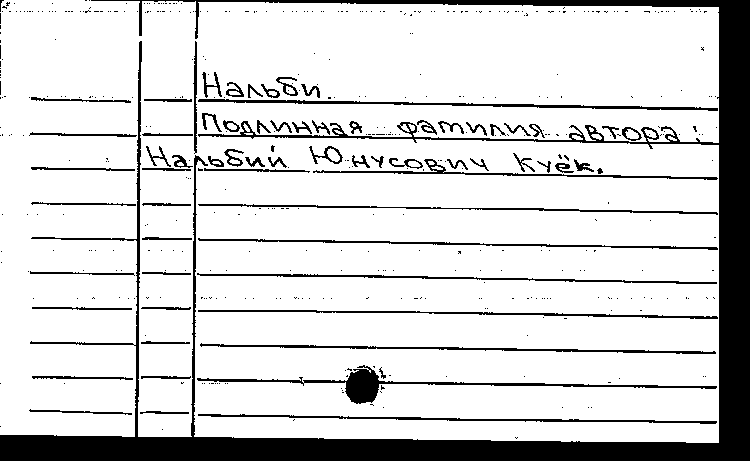 Нальби.
Подлинная фамилия автора:
Нальбий Юнусович Куёк.